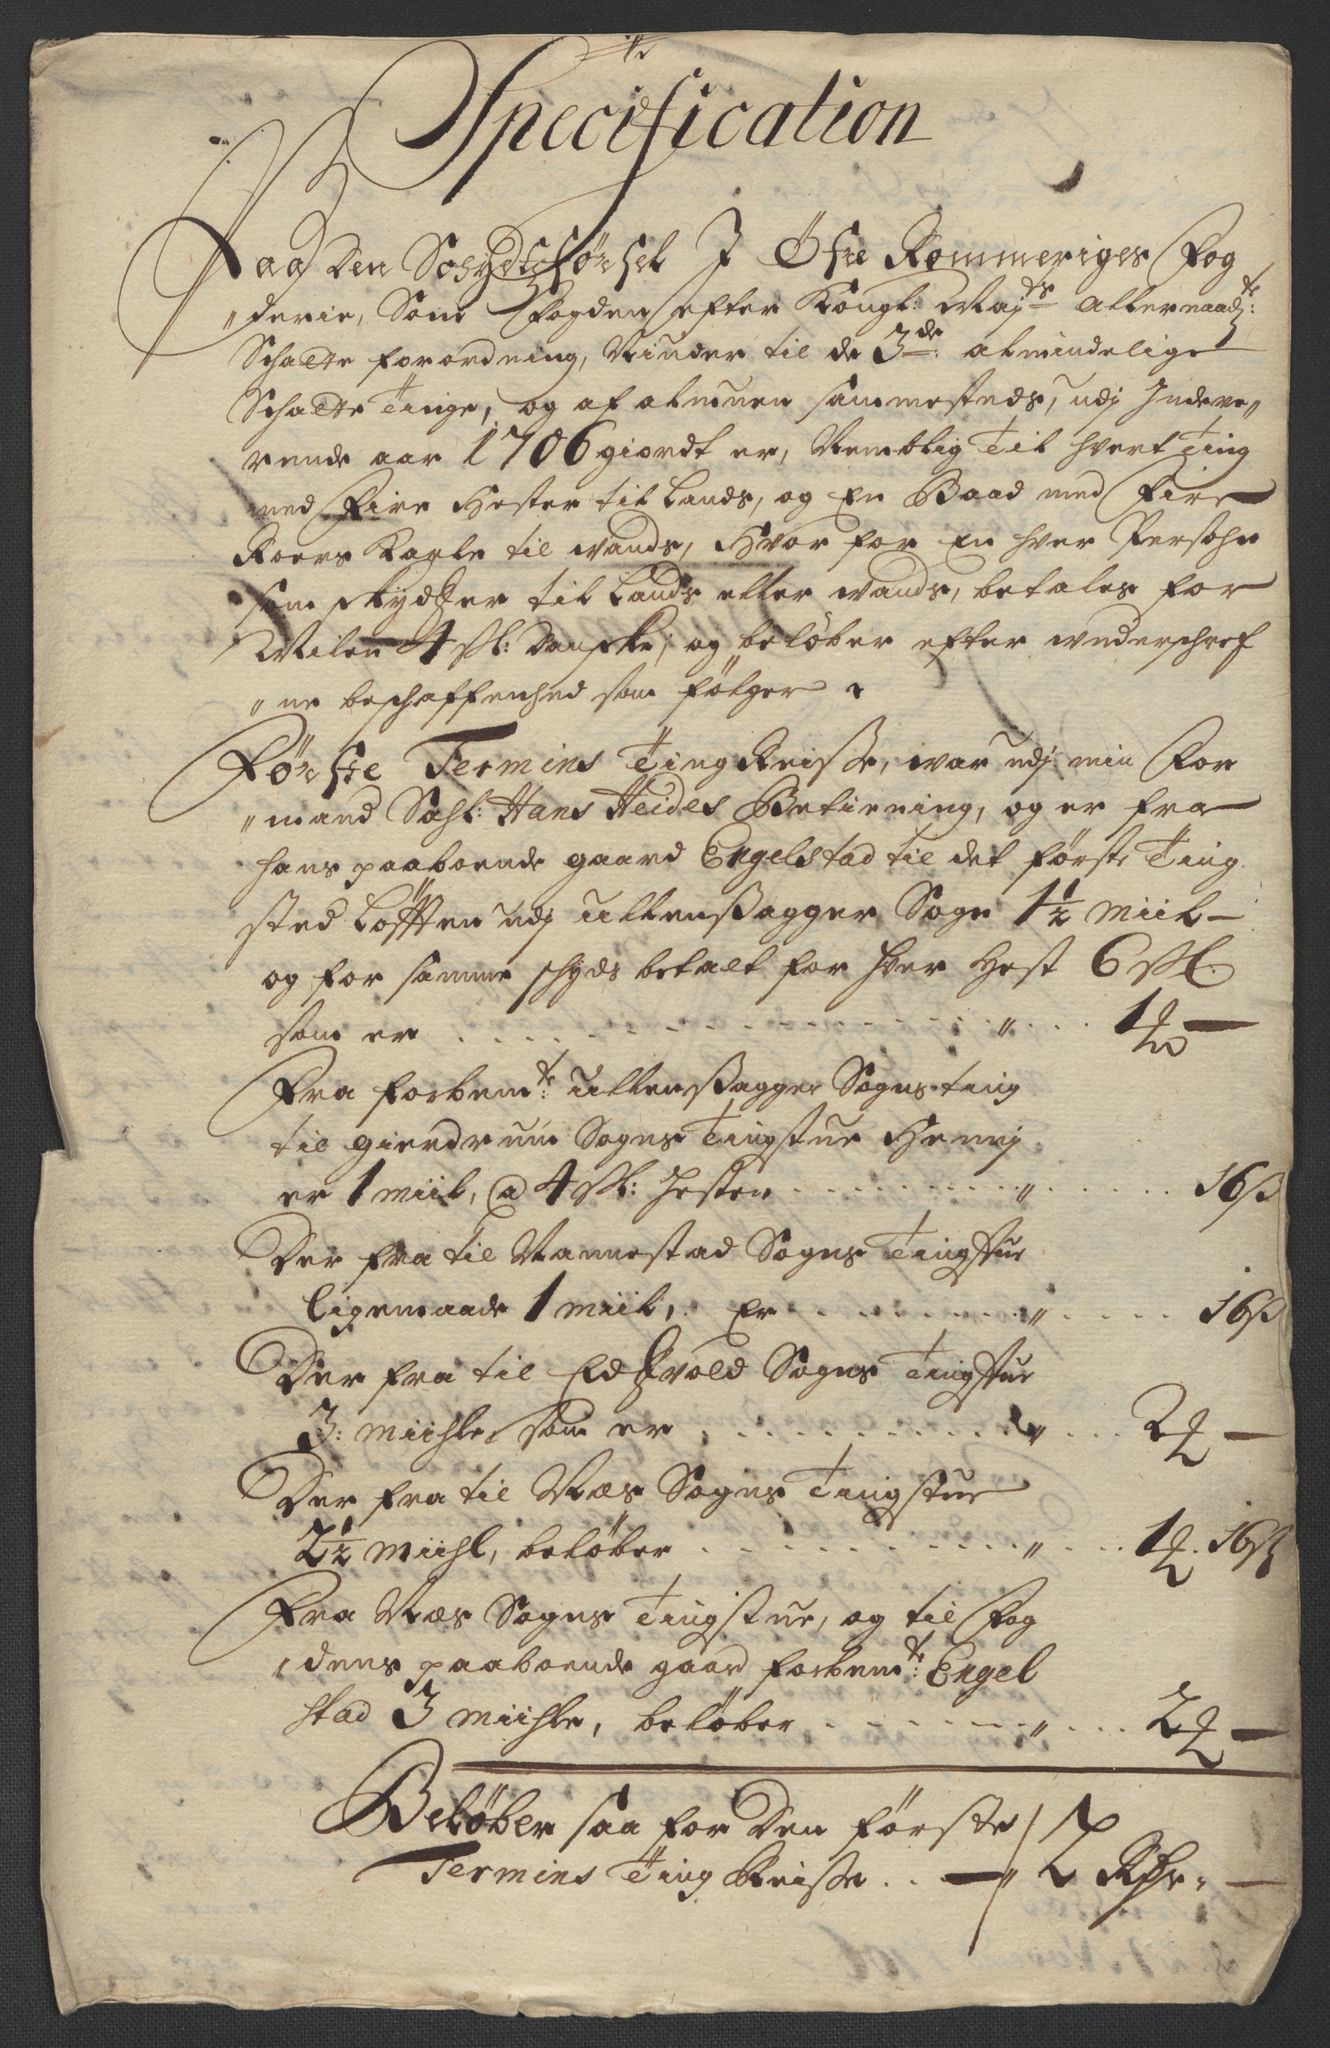 Specification
Paa den Schydtsførsel I Øfre Rommeriges Fog
"derie, Som Fogden efter Kongl: Maj:ts allernaad:te
Schatte forordning, Niuder til de 3de: almindelige
Schatte Tinge, og af almuen sammesteds, udj Indeve„
rende aar 1706 giordt er, Nemblig Til hvert Ting
med Fire Hester til Lands, og En Baad med Fire
Roers Karle til wands, Hvor for En hver Persohn
som skydtzer til Lands eller wands, betales for
Milen 4 sk: Danske, og beløber efter underschref
"ne beschaffenhed som følger
Første Termins Ting Reisse, war udj min For
"mand Sahl: Hans Heides Betiening, og er fra
hans paaboende gaard Engelstad til det første Ting
sted Løfften udj Ullensagger Sogn 1½ miil –
og for samme schyds betalt for hver Hest 6 sk.
som er . . . " . . . 1 rd –
Fra forbem:te Ullensagger Sogns ting
til gierdrum Sogns Tingstue Henwj
er 1 miil, a 4 sk: Hesten . . . " . . . 16 s
Der fra til Nannestad Sogns Tingstue
ligemaade 1 miil, Er . . . " . . . 16 s
Der fra til Edtzvold Sogns Tingstue
3: miihle, som er . . . " . . . 2 rd –
Der fra til Næs Sogns Tingstue
2½ miihl, beløber . . . " . . . 1 rd. 16 s
Fra Næs Sogns Tingstue, og til Fog
"dens paaboende gaard forbem:te Engel
stad 3 miihle, beløber . . . " . . . 2 rd –
Beløber saa for Den første
Termins Ting Reisse . . – " 7 Rdr. –